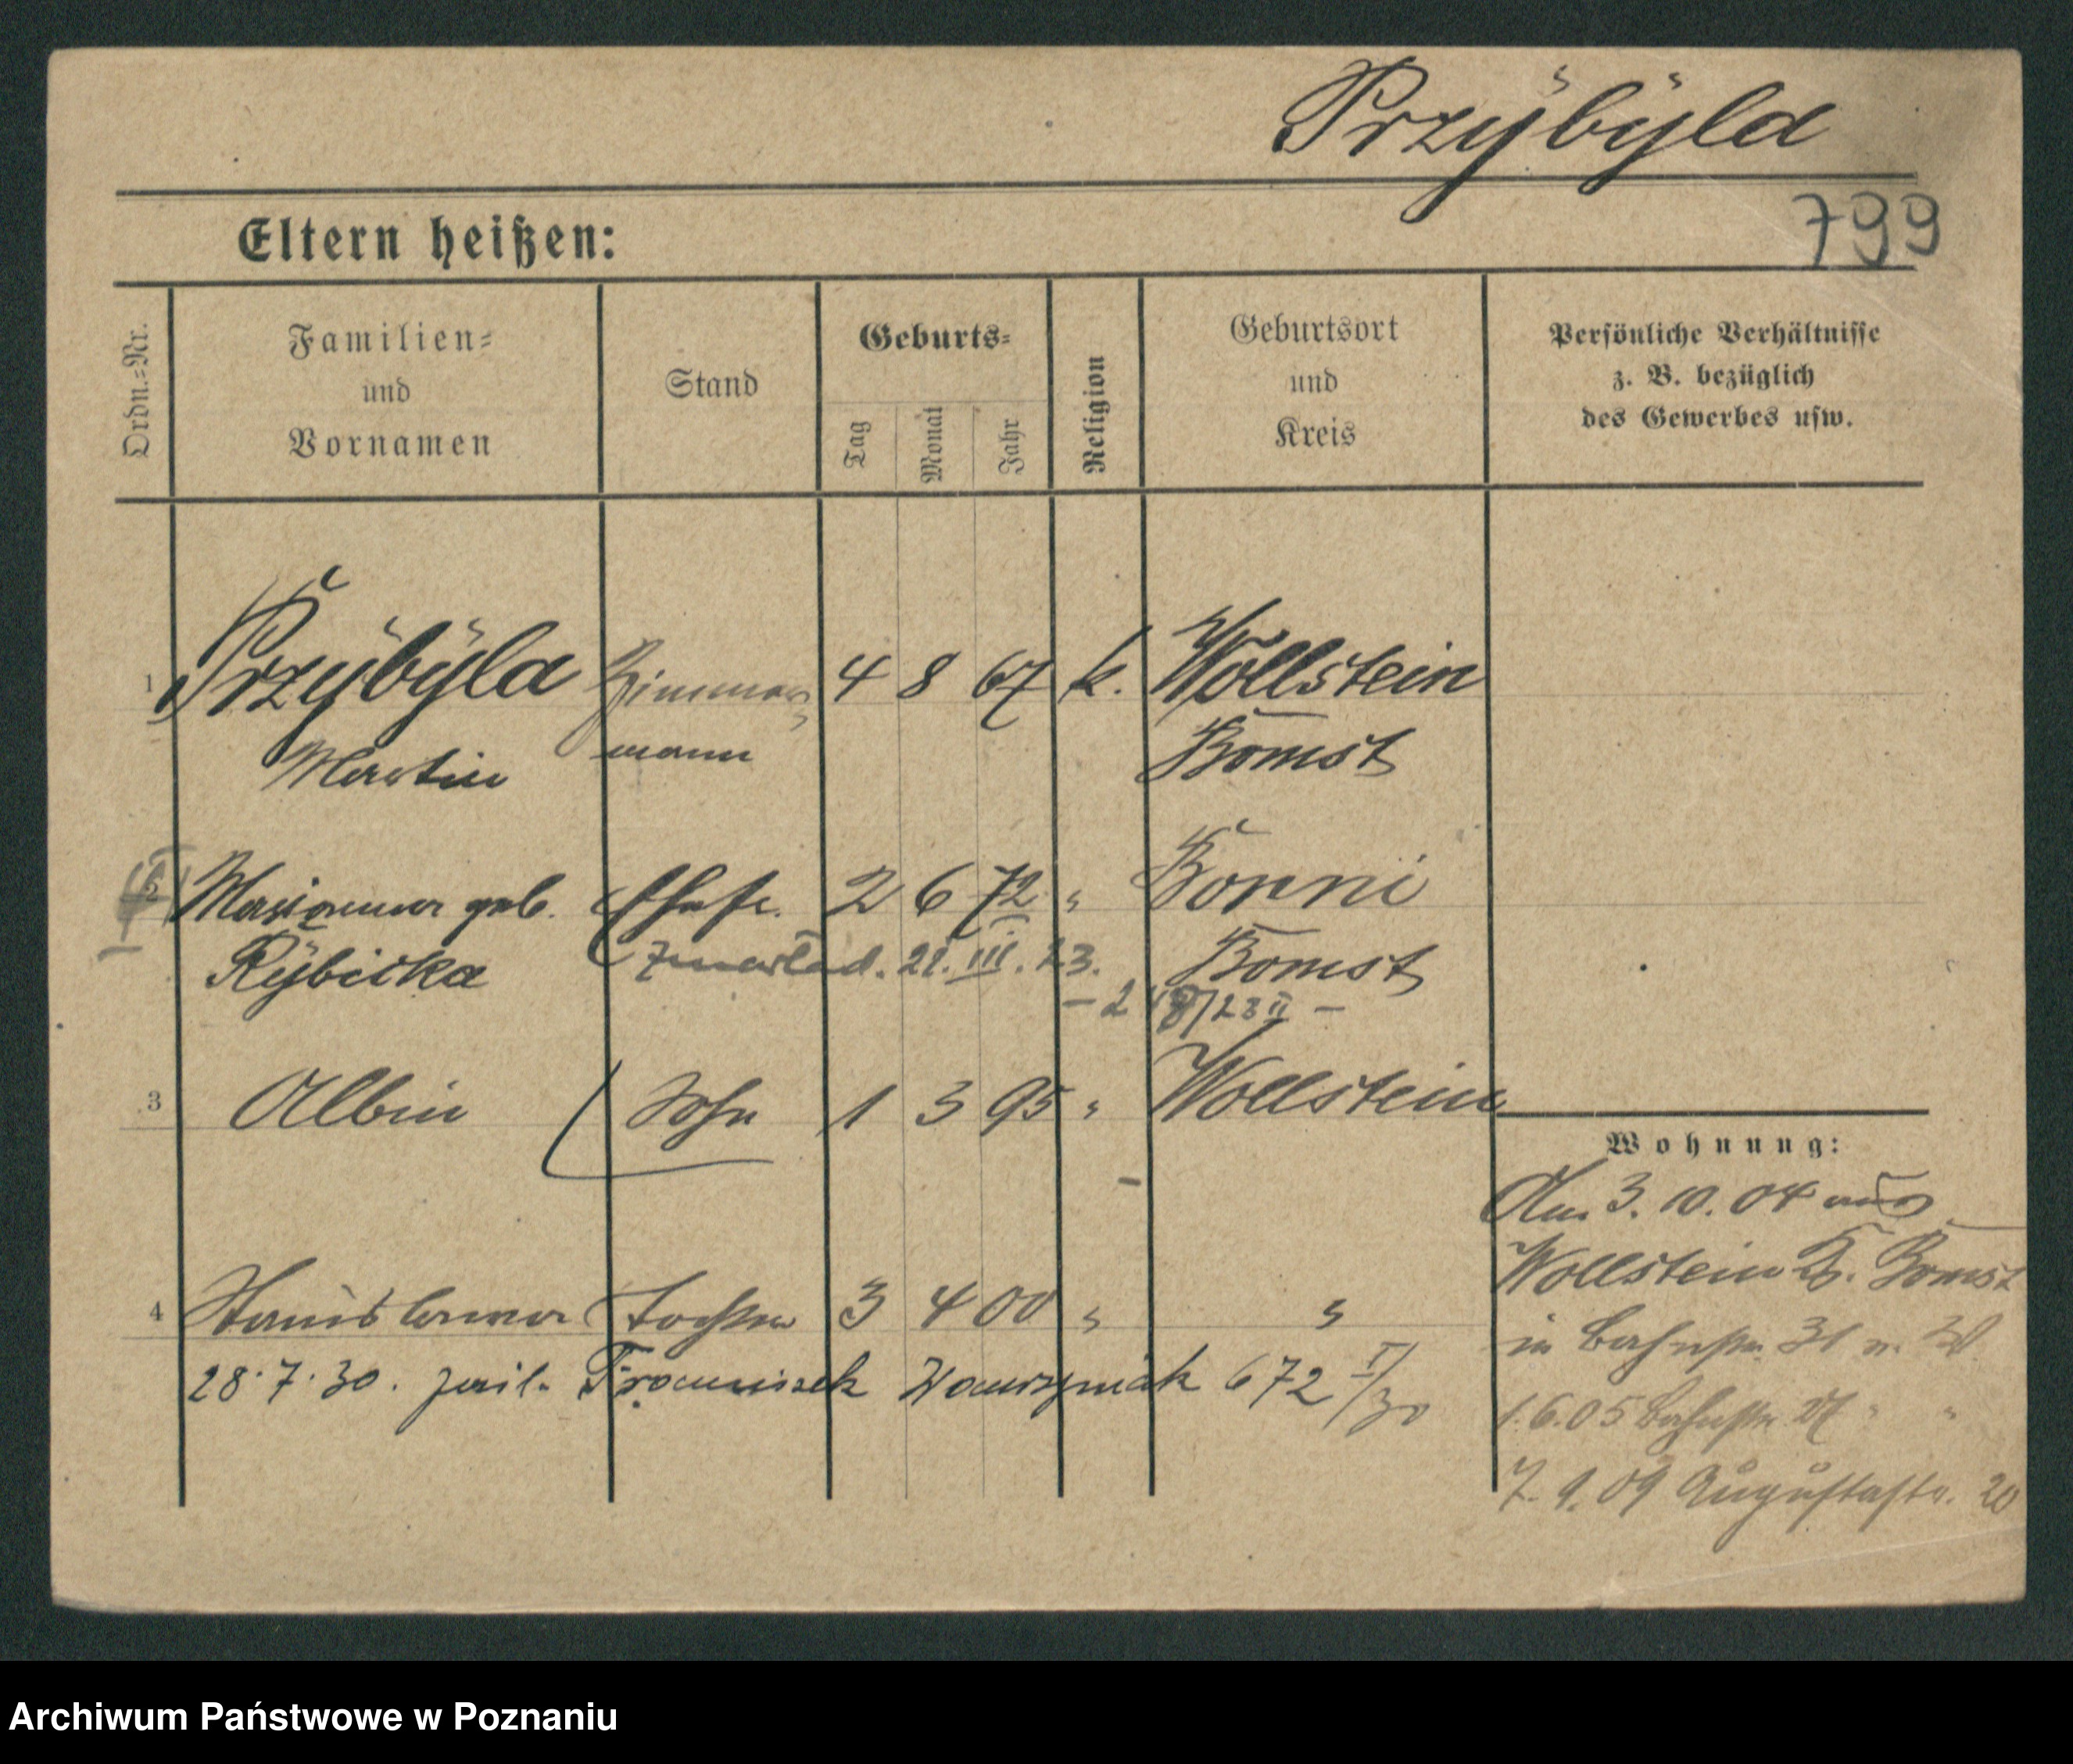 Przÿbÿla
799
Eltern heißen:
Ordn.-Nr.
Familien-
und
Vornamen
Stand
Geburts-
Tag
Monat
Jahr
Religion
Geburtsort
und
Kreis
Persönliche Verhältnisse
z. B. bezüglich
des Gewerbes usw.
1 Przÿbÿla Zimmer- 4 8 67 k. Wollstein
Martin mann Bomst
2 Marianna geb. Ehefr. 2 6 72 " Borni
Rÿbicka zmarła d. 21. III. 23. Bomst
3 Albin Sohn 1 3 95 " Wollstein
Wohnung:
Am 3. 10. 04 aus
Wollstein Kr. Bomst
4 Stanislawa Tochter 3 4 00 " "
in Bahnstr. 31
28.7.30. Franciszek Wawrzyniak 672 I/30
1.6.05 Bahnstr. 27 " "
7. 9. 09 Augustastr. 20
Archiwum Państwowe w Poznaniu